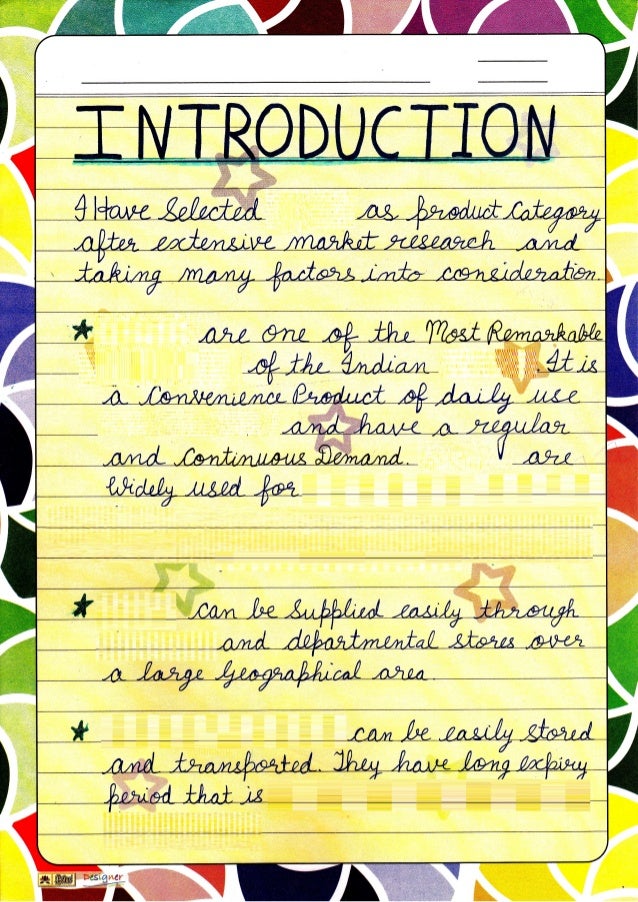 INTRODUCTION
I Have Selected as product Category
after extensive market research and
taking many factors into consideration.
are one of the Most Remarkable
of the Indian . It is
a Convenience Product of daily use
and have a regular
and Continuous Demand. are
Widely used for
can be Supplied easily through
and departmental stores over
a large Geographical area.
can be easily stored
and transported. They have long expiry
period that is
Designer